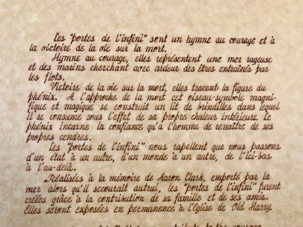 Les "portes de l'infini" sont un hymne au courage et à
la victoire de la vie sur la mort.
Hymne au courage, elles représentent une mer rageuse
et des mains cherchant avec ardeur des êtres entraînés par
les flots.
Victoire de la vie sur la mort, elles tracent la figure du
phénix. A l'approche de la mort cet oiseau symbole magni-
fique et magique se construit un lit de brindilles dans lequel
il se consume sous l'effet de sa propre chaleur intérieure. Le
phénix incarne la confiance qu'a l'homme de renaître de ses
propres cendres.
Les "portes de l'infini" nous rappellent que nous passons
d'un état à un autre, d'un monde à un autre, de l'ici-bas
à l'au-delà.
Réalisées à la mémoire de Aaron Clark, emporté par la
mer alors qu'il secourait autrui, les "portes de l'infini" furent
créées grâce à la contribution de sa famille et de ses amis.
Elles seront exposées en permanence à l'église de Old Harry.